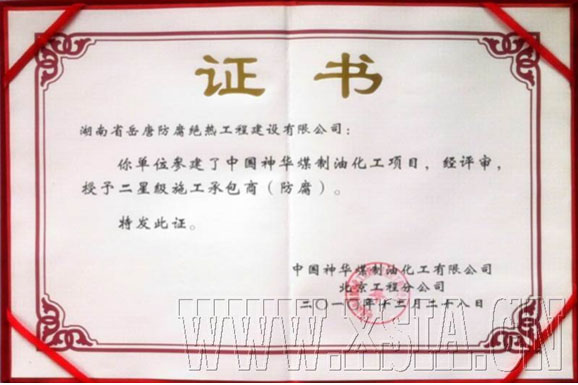 证 书
湖南省岳唐防腐绝热工程建设有限公司：
你单位参建了中国神华煤制油化工项目，经评审，
授予二星级施工承包商（防腐）。
特发此证。
中国神华煤制油化工有限公司
北京工程分公司
二〇一〇年十二月二十八日
WWW.XSIA.CN